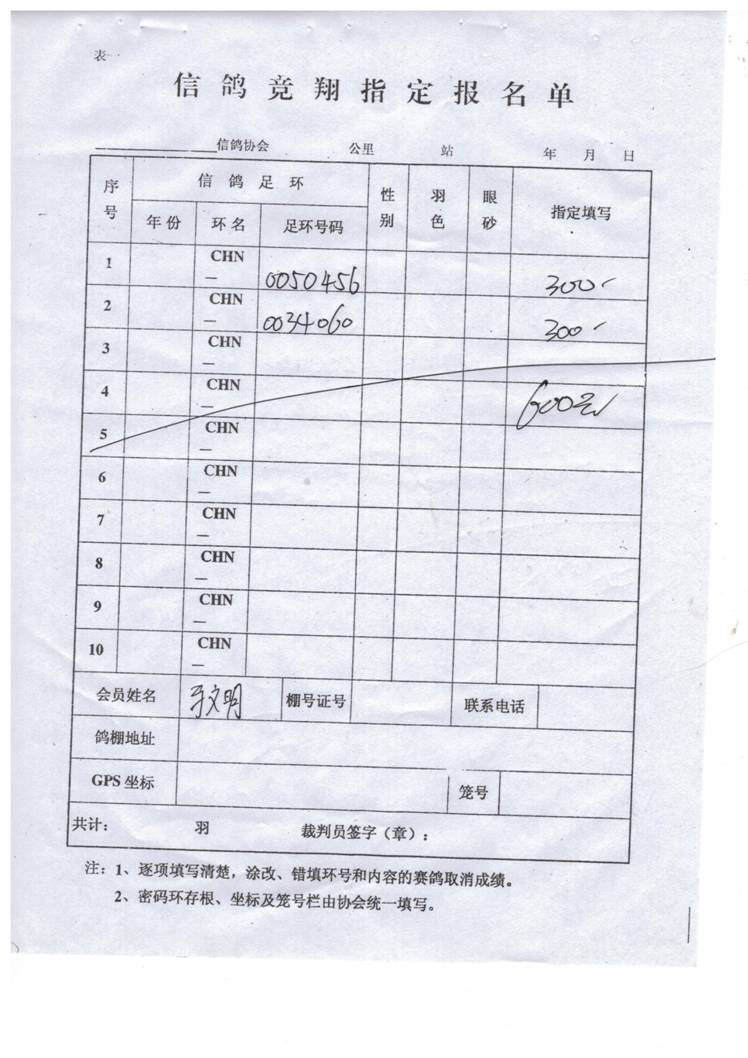 表一
信鸽竞翔指定报名单
信鸽协会 公里 站 年 月 日
序号 信鸽足环 性别 羽色 眼砂 指定填写
年份 环名 足环号码
1 CHN— 0050456 300
2 CHN— 0034060 300
3 CHN
4 CHN— 600元
5 CHN—
6 CHN—
7 CHN—
8 CHN—
9 CHN—
10 CHN—
会员姓名 于文明 棚号证号 联系电话
鸽棚地址
GPS 坐标 笼号
共计： 羽 裁判员签字（章）：
注：1、逐项填写清楚，涂改、错填环号和内容的赛鸽取消成绩。
2、密码环存根、坐标及笼号栏由协会统一填写。